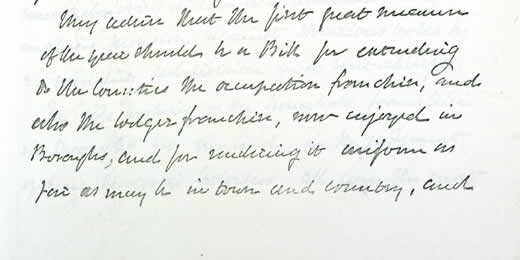 They advise that the first great measure
of the year should be a Bill for extending
to the Counties the occupation franchise, and
also the lodger franchise, now enjoyed in
Boroughs, and for rendering it uniform as
far as may be in town and country, and